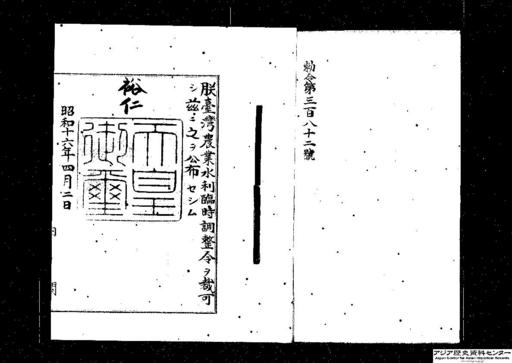 勅令第三百八十二號
朕臺灣農業水利臨時調整令ヲ裁可
シ茲ニ之ヲ公布セシム
裕仁
天皇
御璽
昭和十六年四月二日
アジア歴史資料センター
Japan Center for Asian Historical Records